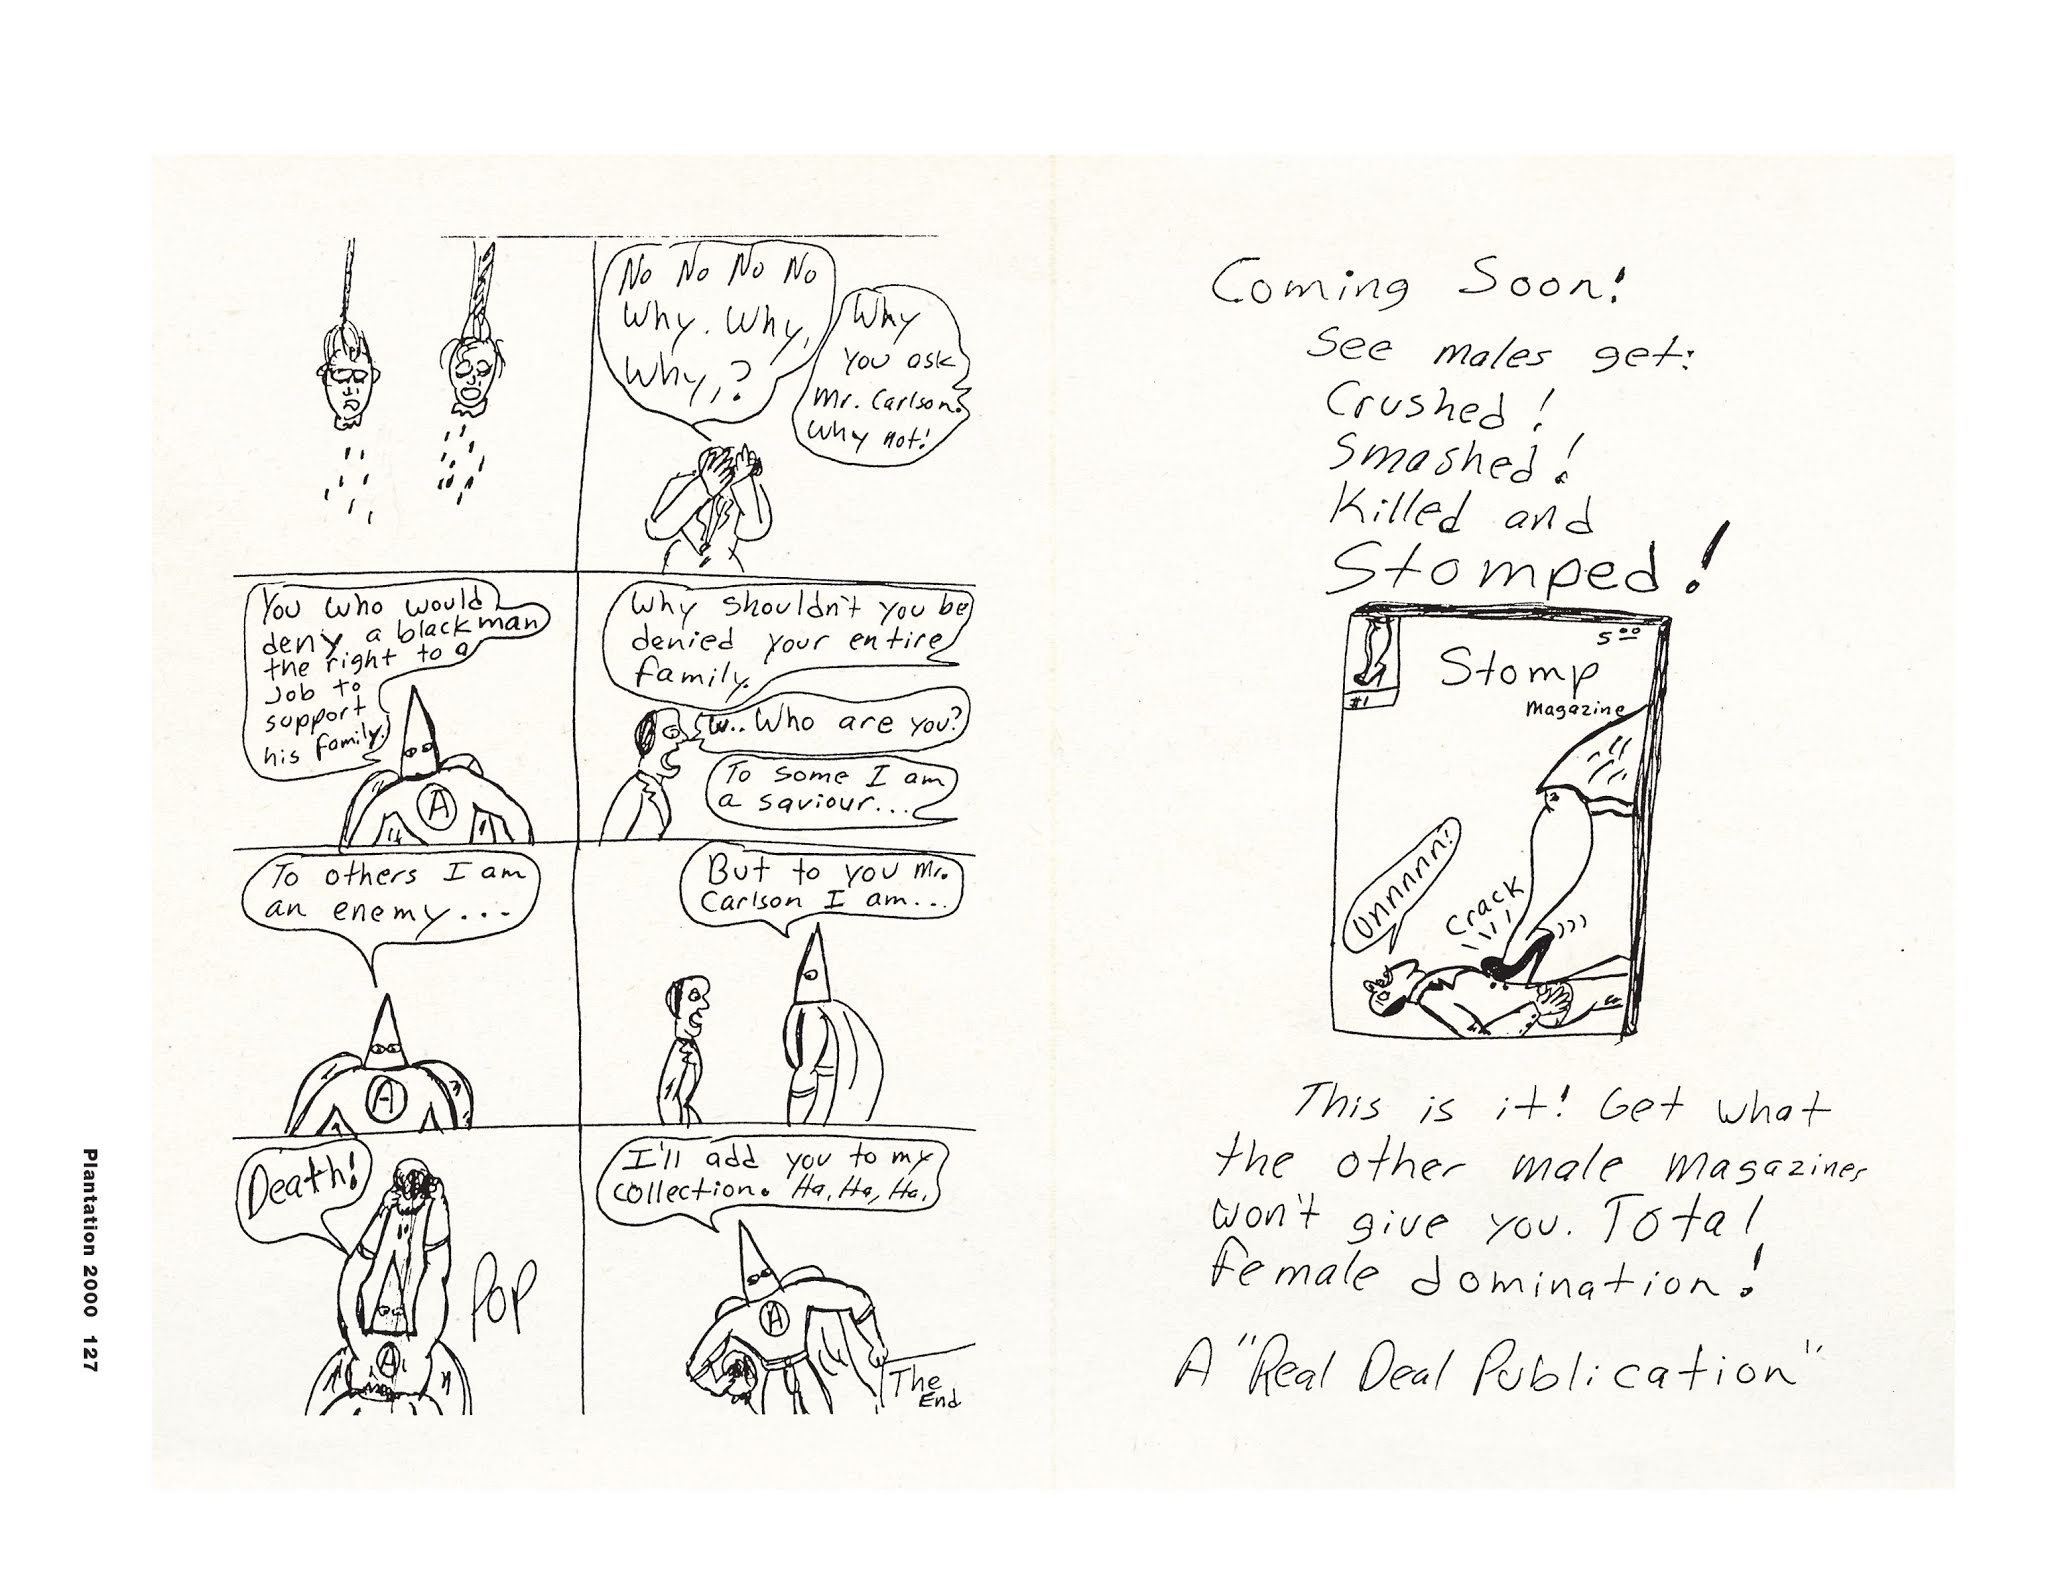 No No No No
Why. Why,
Why,?
Why
You ask
Mr. Carlson.
Why not!
You who would
deny a black man
the right to a
Job to
support
his family.
A
Why shouldn't you be
denied your entire
family.
W.. Who are you?
To some I am
a saviour...
To others I am
an enemy...
A
But to you Mr.
Carlson I am...
Death!
POP
A
I'll add you to my
collection. Ha, Ha, Ha.
A
The
End
Coming Soon!
See males get:
Crushed!
Smashed!
Killed and
Stomped!
5.00
Stomp
Magazine
#1
Unnnnnn!
Crack
This is it! Get what
the other male magazines
won't give you. Total
female domination!
A "Real Deal Publication"
Plantation 2000 127